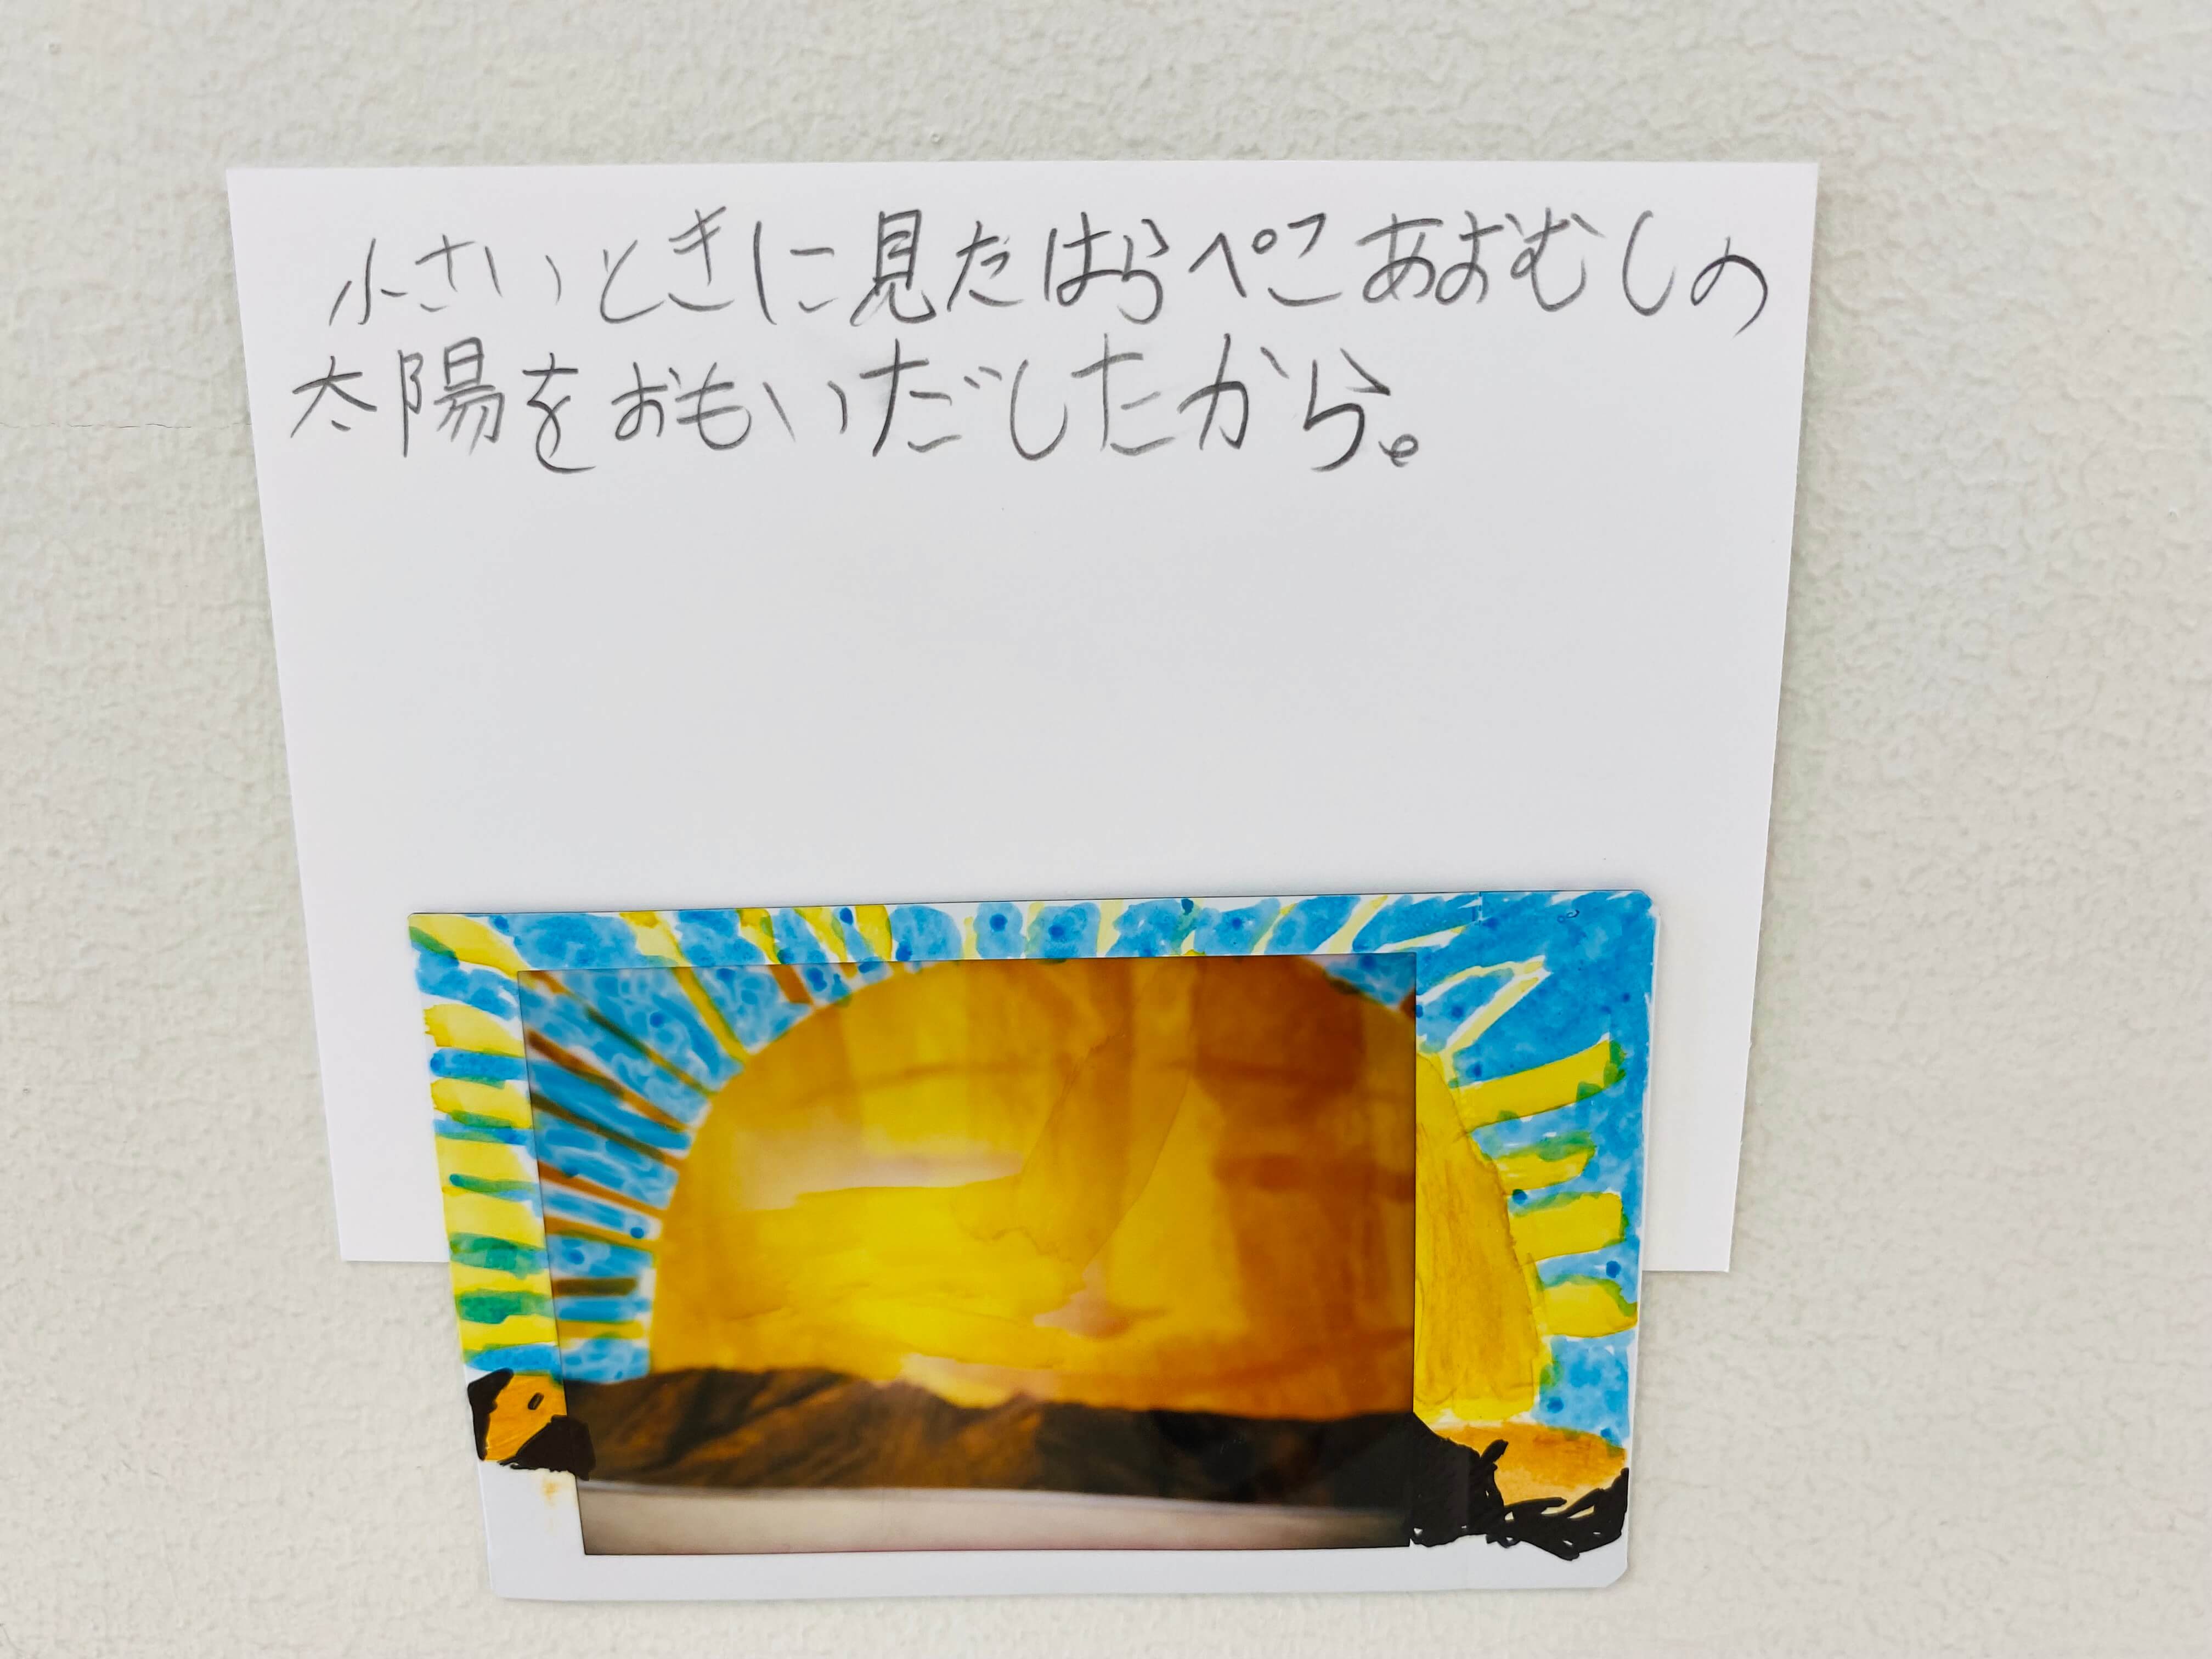 小さいときに見たはらぺこあおむしの
太陽をおもいだしたから。